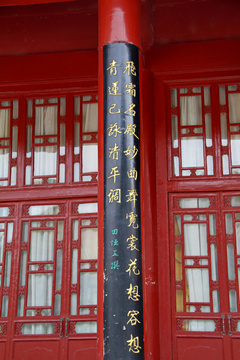 飛霜名殿妙曲舞霓裳花想容想
青蓮已詠清平調